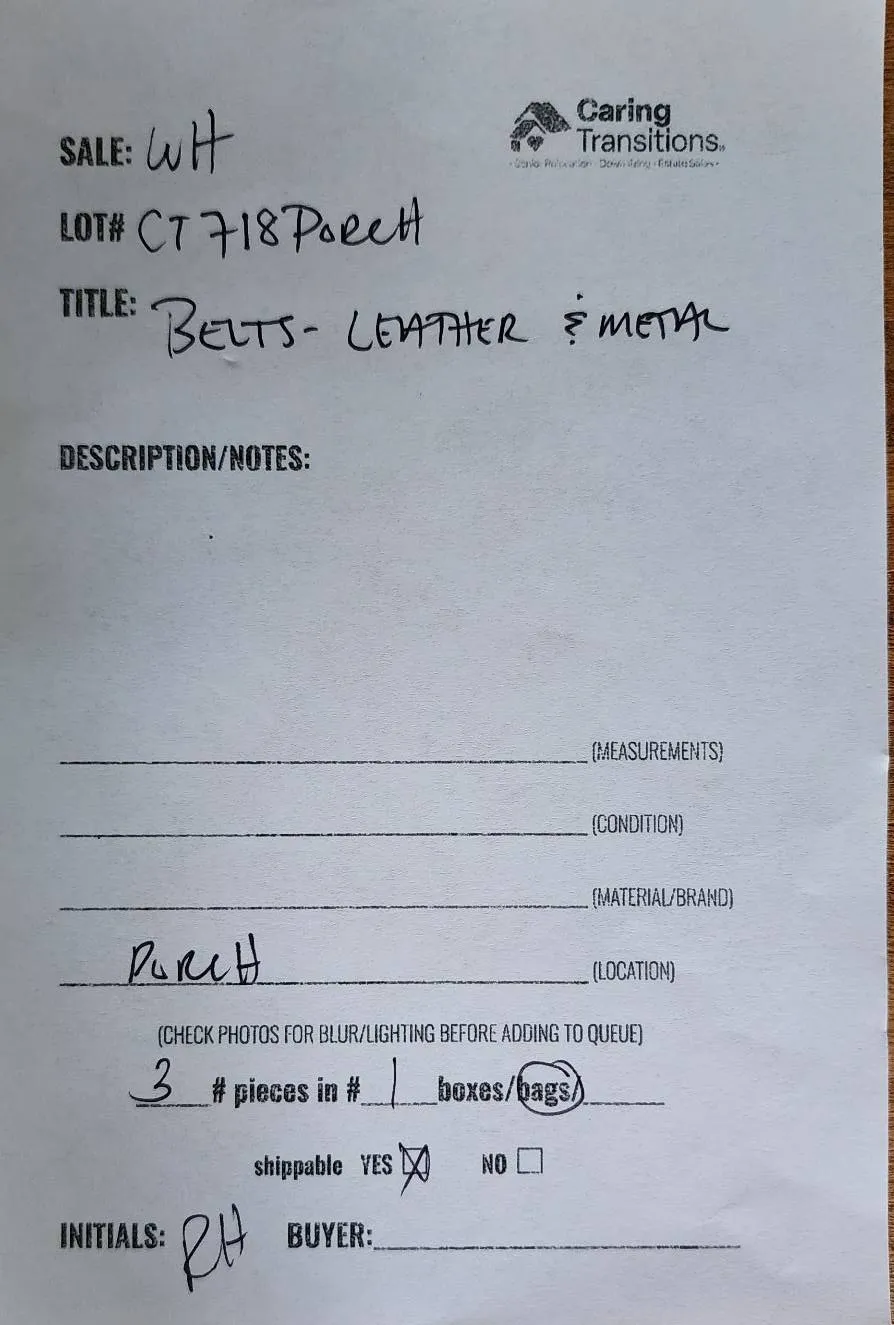 Caring
Transitions
Senior Relocation · Downsizing · Estate Sales
SALE: WH
LOT# CT718PORCH
TITLE: BELTS- LEATHER & METAL
DESCRIPTION/NOTES:
(MEASUREMENTS)
(CONDITION)
(MATERIAL/BRAND)
PORCH (LOCATION)
(CHECK PHOTOS FOR BLUR/LIGHTING BEFORE ADDING TO QUEUE)
3 # pieces in # 1 boxes/bags/
shippable YES NO
INITIALS: RH BUYER: